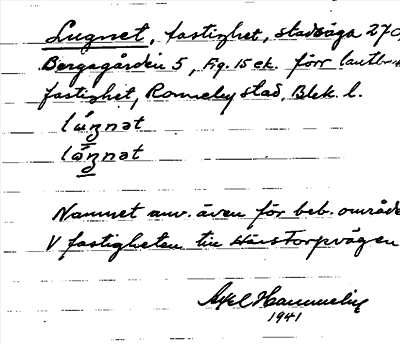 Lugnet, fastighet, stadsäga 270,
Bergagården 5, Fig. 15 ek. förr lantbr
fastighet, Ronneby stad, Blek. l.
lúŋnət
lóŋnət
Namnet anv. även för beb. område
V fastigheten till Härstorpvägen
Axel Hammelin
1941